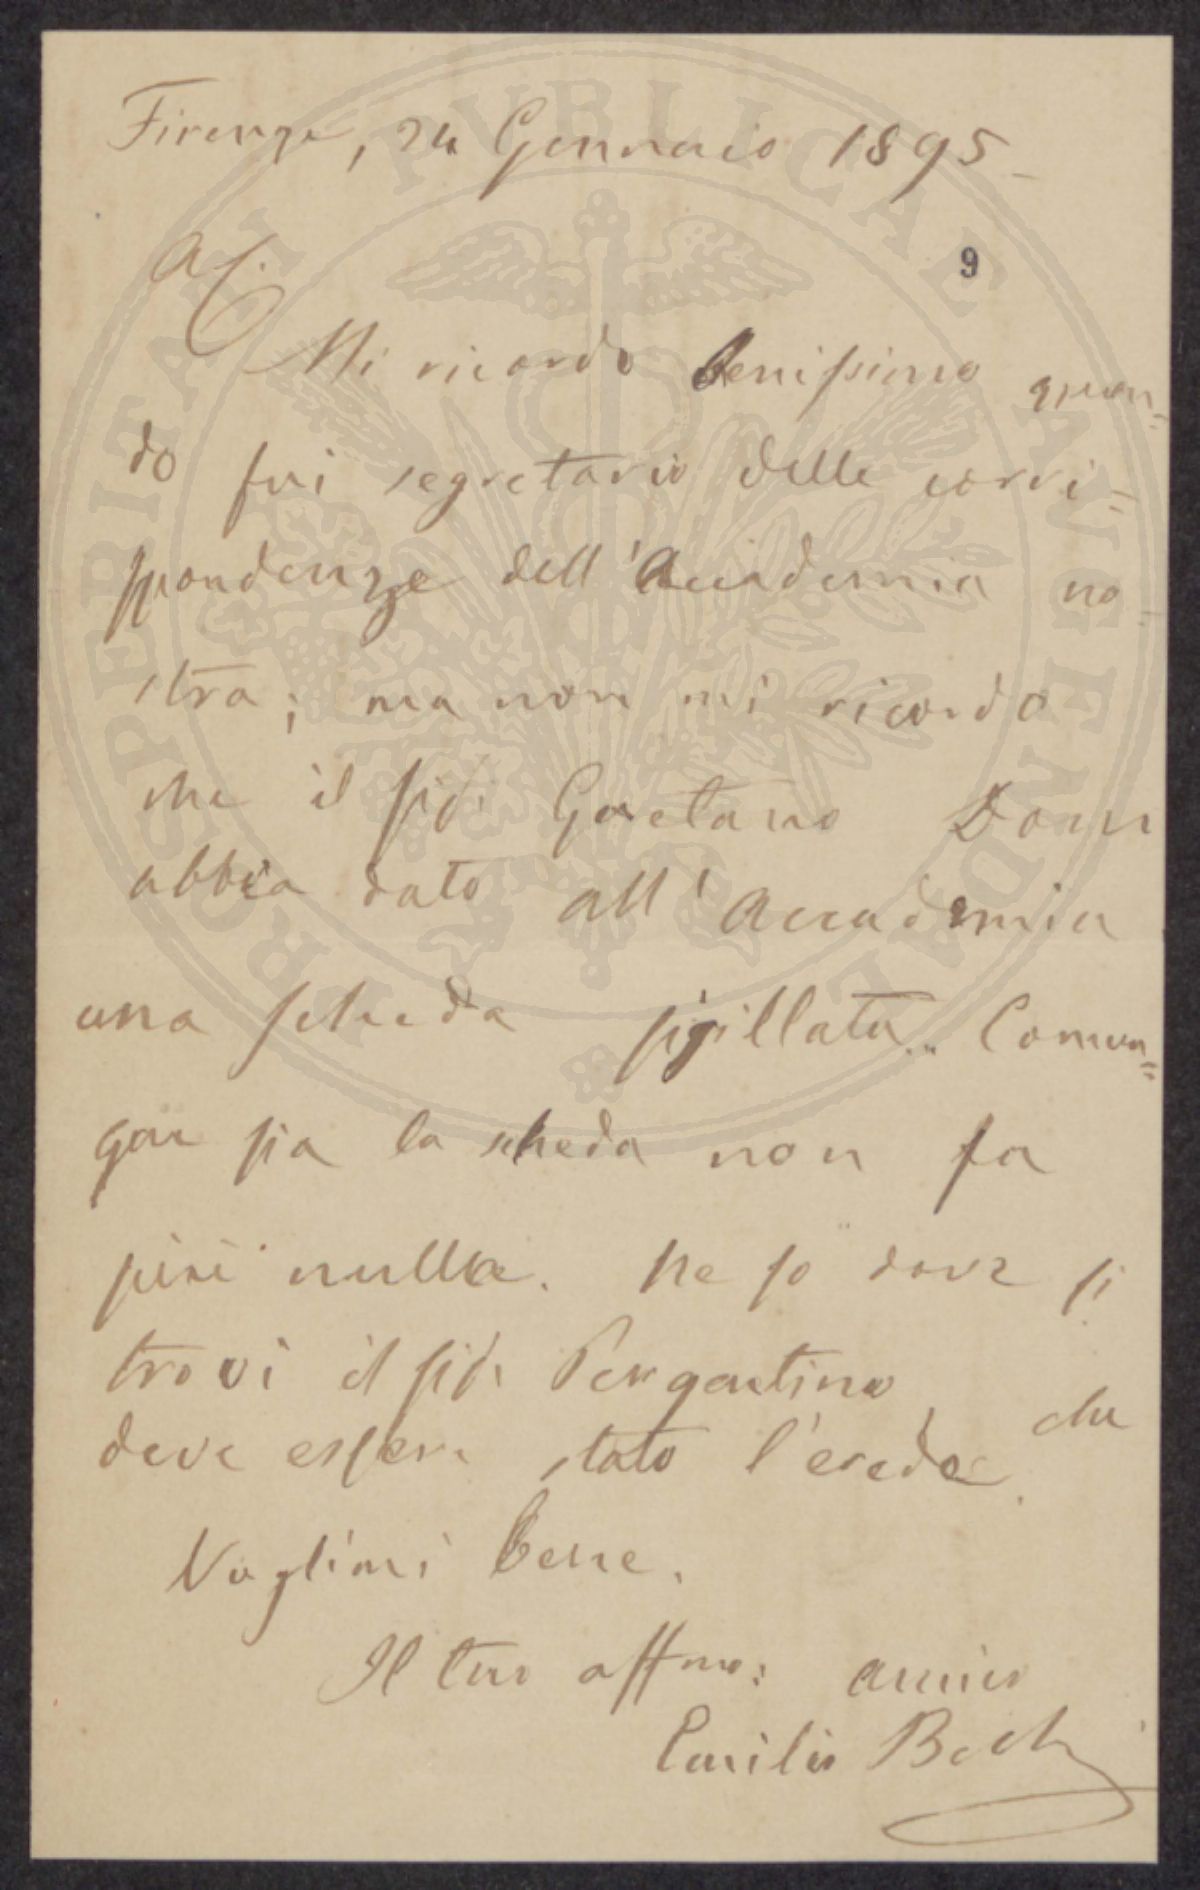 Firenze, 24 Gennaio 1895
9
A. C.
Mi ricordo benissimo quan=
do fui segretario delle corri=
spondenze dell'Accademia no=
stra; ma non mi ricordo
che il sig. Gaetano Doni
abbia dato all'Accademia
una scheda sigillata.. Comun=
que sia la scheda non fa
più nulla. Ne so dove si
trovi il sig. Pergentino, che
deve essere stato l'erede.
Voglimi bene.
Il tuo affmo: amico
Emilio Bechi
PROSPERITATI PVBLICAE AVGENDAE